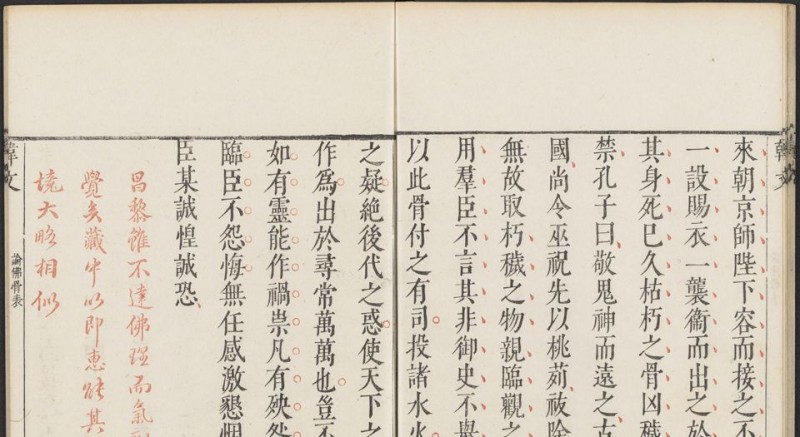 韓文
來朝京師陛下容而接之不
一設賜衣一襲衞而出之於
其身死已久枯朽之骨凶穢
禁孔子曰敬鬼神而遠之古
國尚令巫祝先以桃茢祓除
無故取朽穢之物親臨觀之
用羣臣不言其非御史不舉
以此骨付之有司投諸水火
之疑絶後代之惑使天下之
作爲出於尋常萬萬也豈不
如有靈能作禍祟凡有殃咎
臨臣不怨悔無任感激懇悃
臣某誠惶誠恐
昌黎雖不達佛理而氣
覺矣藏中以即恵
其
境大略相似
韓文
論佛骨表